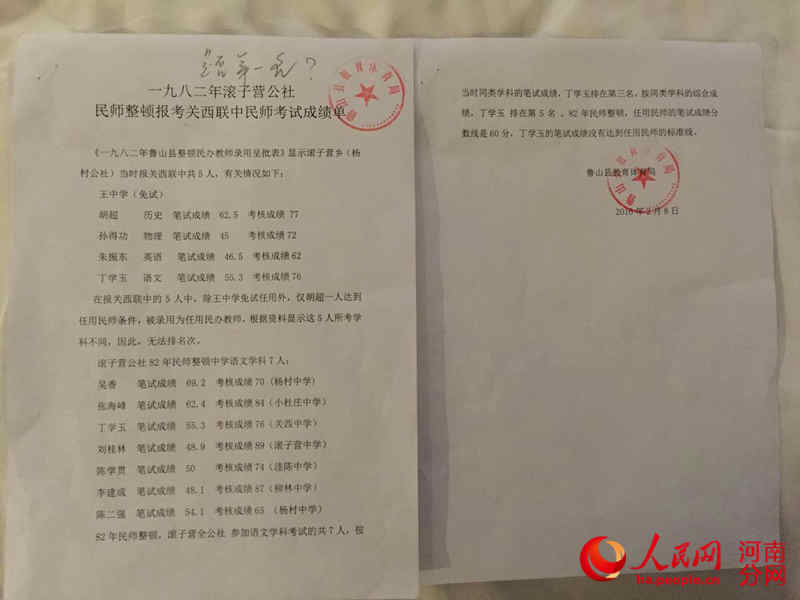 第一名？
一九八二年滚子营公社
民师整顿报考关西联中民师考试成绩单
《一九八二年鲁山县整顿民办教师录用呈批表》显示滚子营乡（杨
村公社）当时报关西联中共5人，有关情况如下：
王中学（免试）
胡超 历史 笔试成绩 62.5 考核成绩 77
孙得功 物理 笔试成绩 45 考核成绩72
朱振东 英语 笔试成绩 46.5 考核成绩62
丁学玉 语文 笔试成绩 55.3 考核成绩76
在报关西联中的5人中，除王中学免试任用外，仅胡超一人达到
任用民师条件，被录用为任用民办教师。根据资料显示这5人所考学
科不同，因此，无法排名次。
滚子营公社82年民师整顿中学语文学科7人：
吴香 笔试成绩 69.2 考核成绩70（杨村中学）
张海峰 笔试成绩 62.4 考核成绩84（小杜庄中学）
丁学玉 笔试成绩 55.3 考核成绩76（关西中学）
刘桂林 笔试成绩 48.9 考核成绩89（滚子营中学）
陈学贯 笔试成绩 50 考核成绩74（洼陈中学）
李建成 笔试成绩 48.1 考核成绩87（柳林中学）
陈二强 笔试成绩 54.1 考核成绩65 （杨村中学）
82年民师整顿，滚子营全公社 参加语文学科考试的共7人，按
当时同类学科的笔试成绩，丁学玉排在第三名。按同类学科的综合成
绩，丁学玉 排在第5名 。82年民师整顿，任用民师的笔试成绩分
数线是60分，丁学玉的笔试成绩没有达到任用民师的标准线。
鲁山县教育体育局
2016年2月8日
鲁山县教育体育局
鲁山县教育体育局
人民网
河南
分网
people.cn